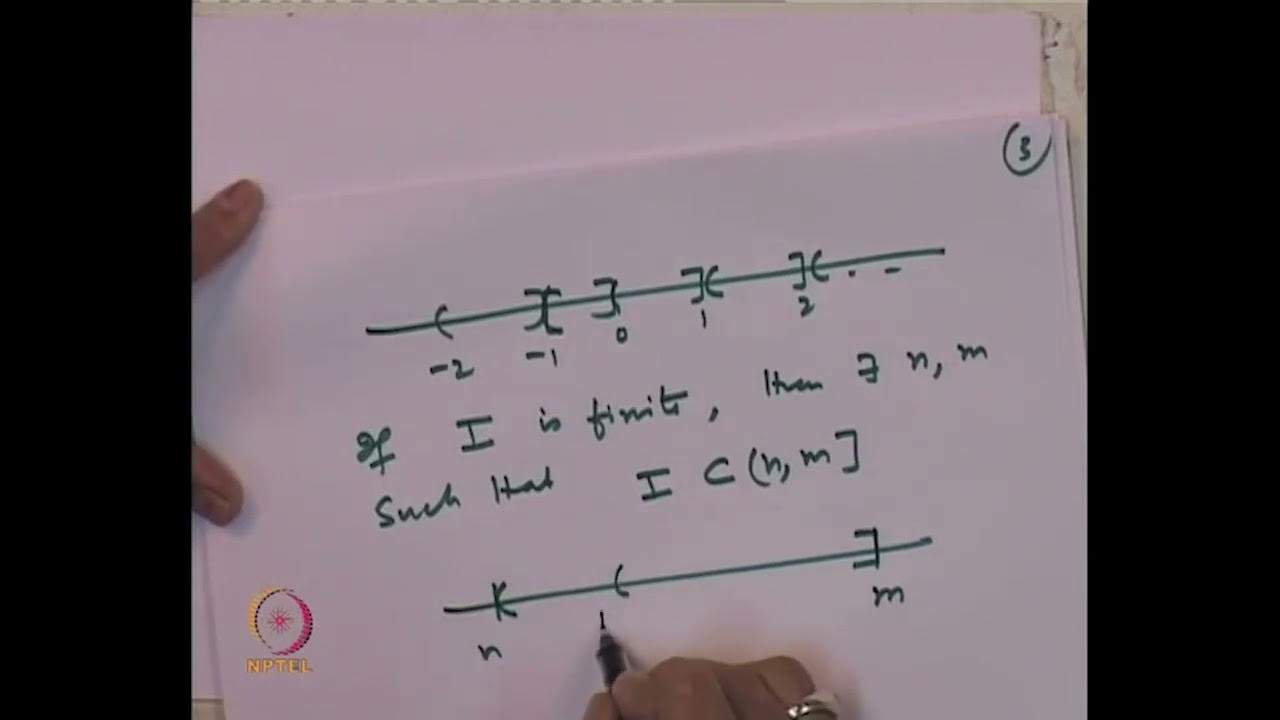 3
-2 -1 0 1 2 . -
If I is finite, then ∃ n, m
Such that I ⊂ (n, m]
n m
NPTEL